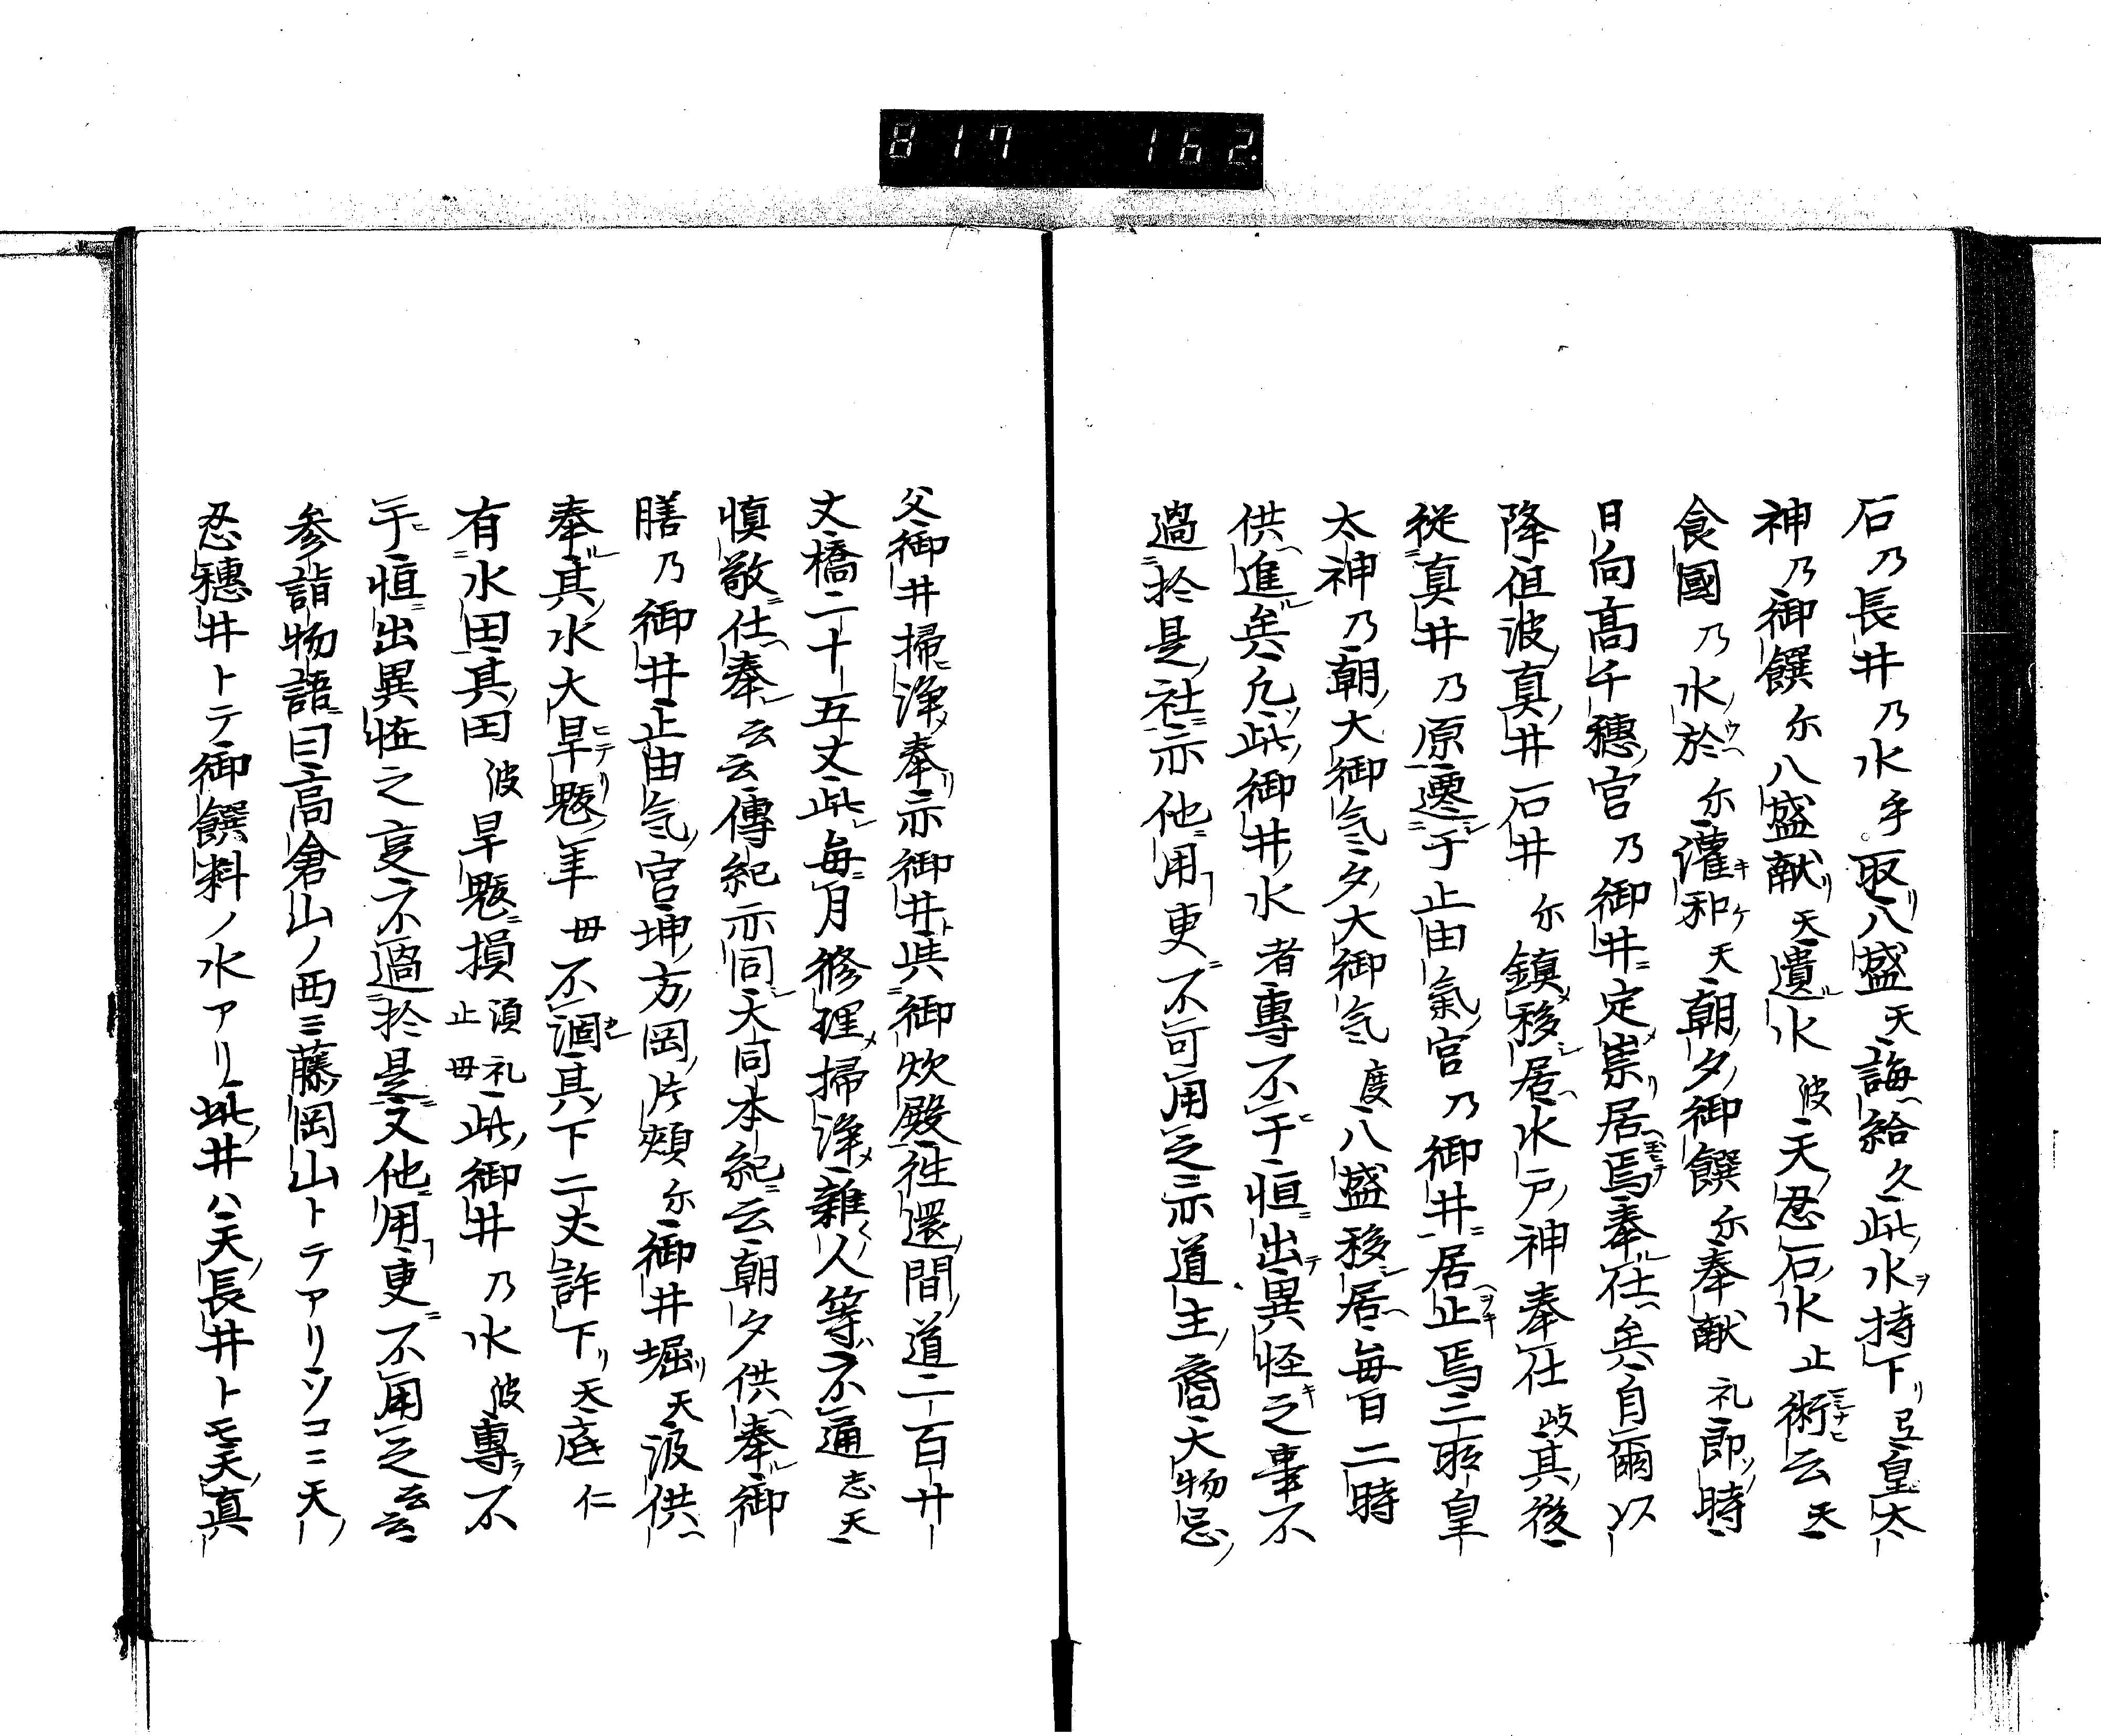 817 162.
石乃長井乃水乎取リ八盛天誨給久此水ヲ持下リ弖皇太
神乃御饌尓八盛献リ天遺水波天忍石水止術云天
食國乃水於尓灌和天朝夕御饌尓奉献礼即時
日向高千穗宮乃御井定崇居焉奉仕矣自爾以
降但波真井石井尓鎮移居水戸神奉仕岐其後
従真井乃原遷于止由氣宮乃御井居止焉二所皇
太神乃朝大御气夕大御气度八盛移居毎日二時
供進矣凡此御井水者專不干恒出異怪之事不
過於是社亦他用更不可用之亦道主裔大物忌
父御井掃浄奉亦御井與御炊殿往還間道二百廿
丈橋二十五丈此毎月修理掃浄雜人等不通志天
慎敬仕奉云云傳紀亦同大同本紀云朝夕供奉御
膳乃御井止由气宮坤方岡片頬尓御井堀天汲供
奉其水大旱魃年毋不涸其下二丈許下リ天底仁
有水田其田波旱魃損須礼止毋此御井乃水波專不
干恒出異恠之㕝不過於是又他用更不用之云云
参詣物語曰高倉山ノ西ニ藤岡山トテアリソコニ天ノ
忍穗井トテ御饌料ノ水アリ此井ハ天ノ長井トモ天ノ真